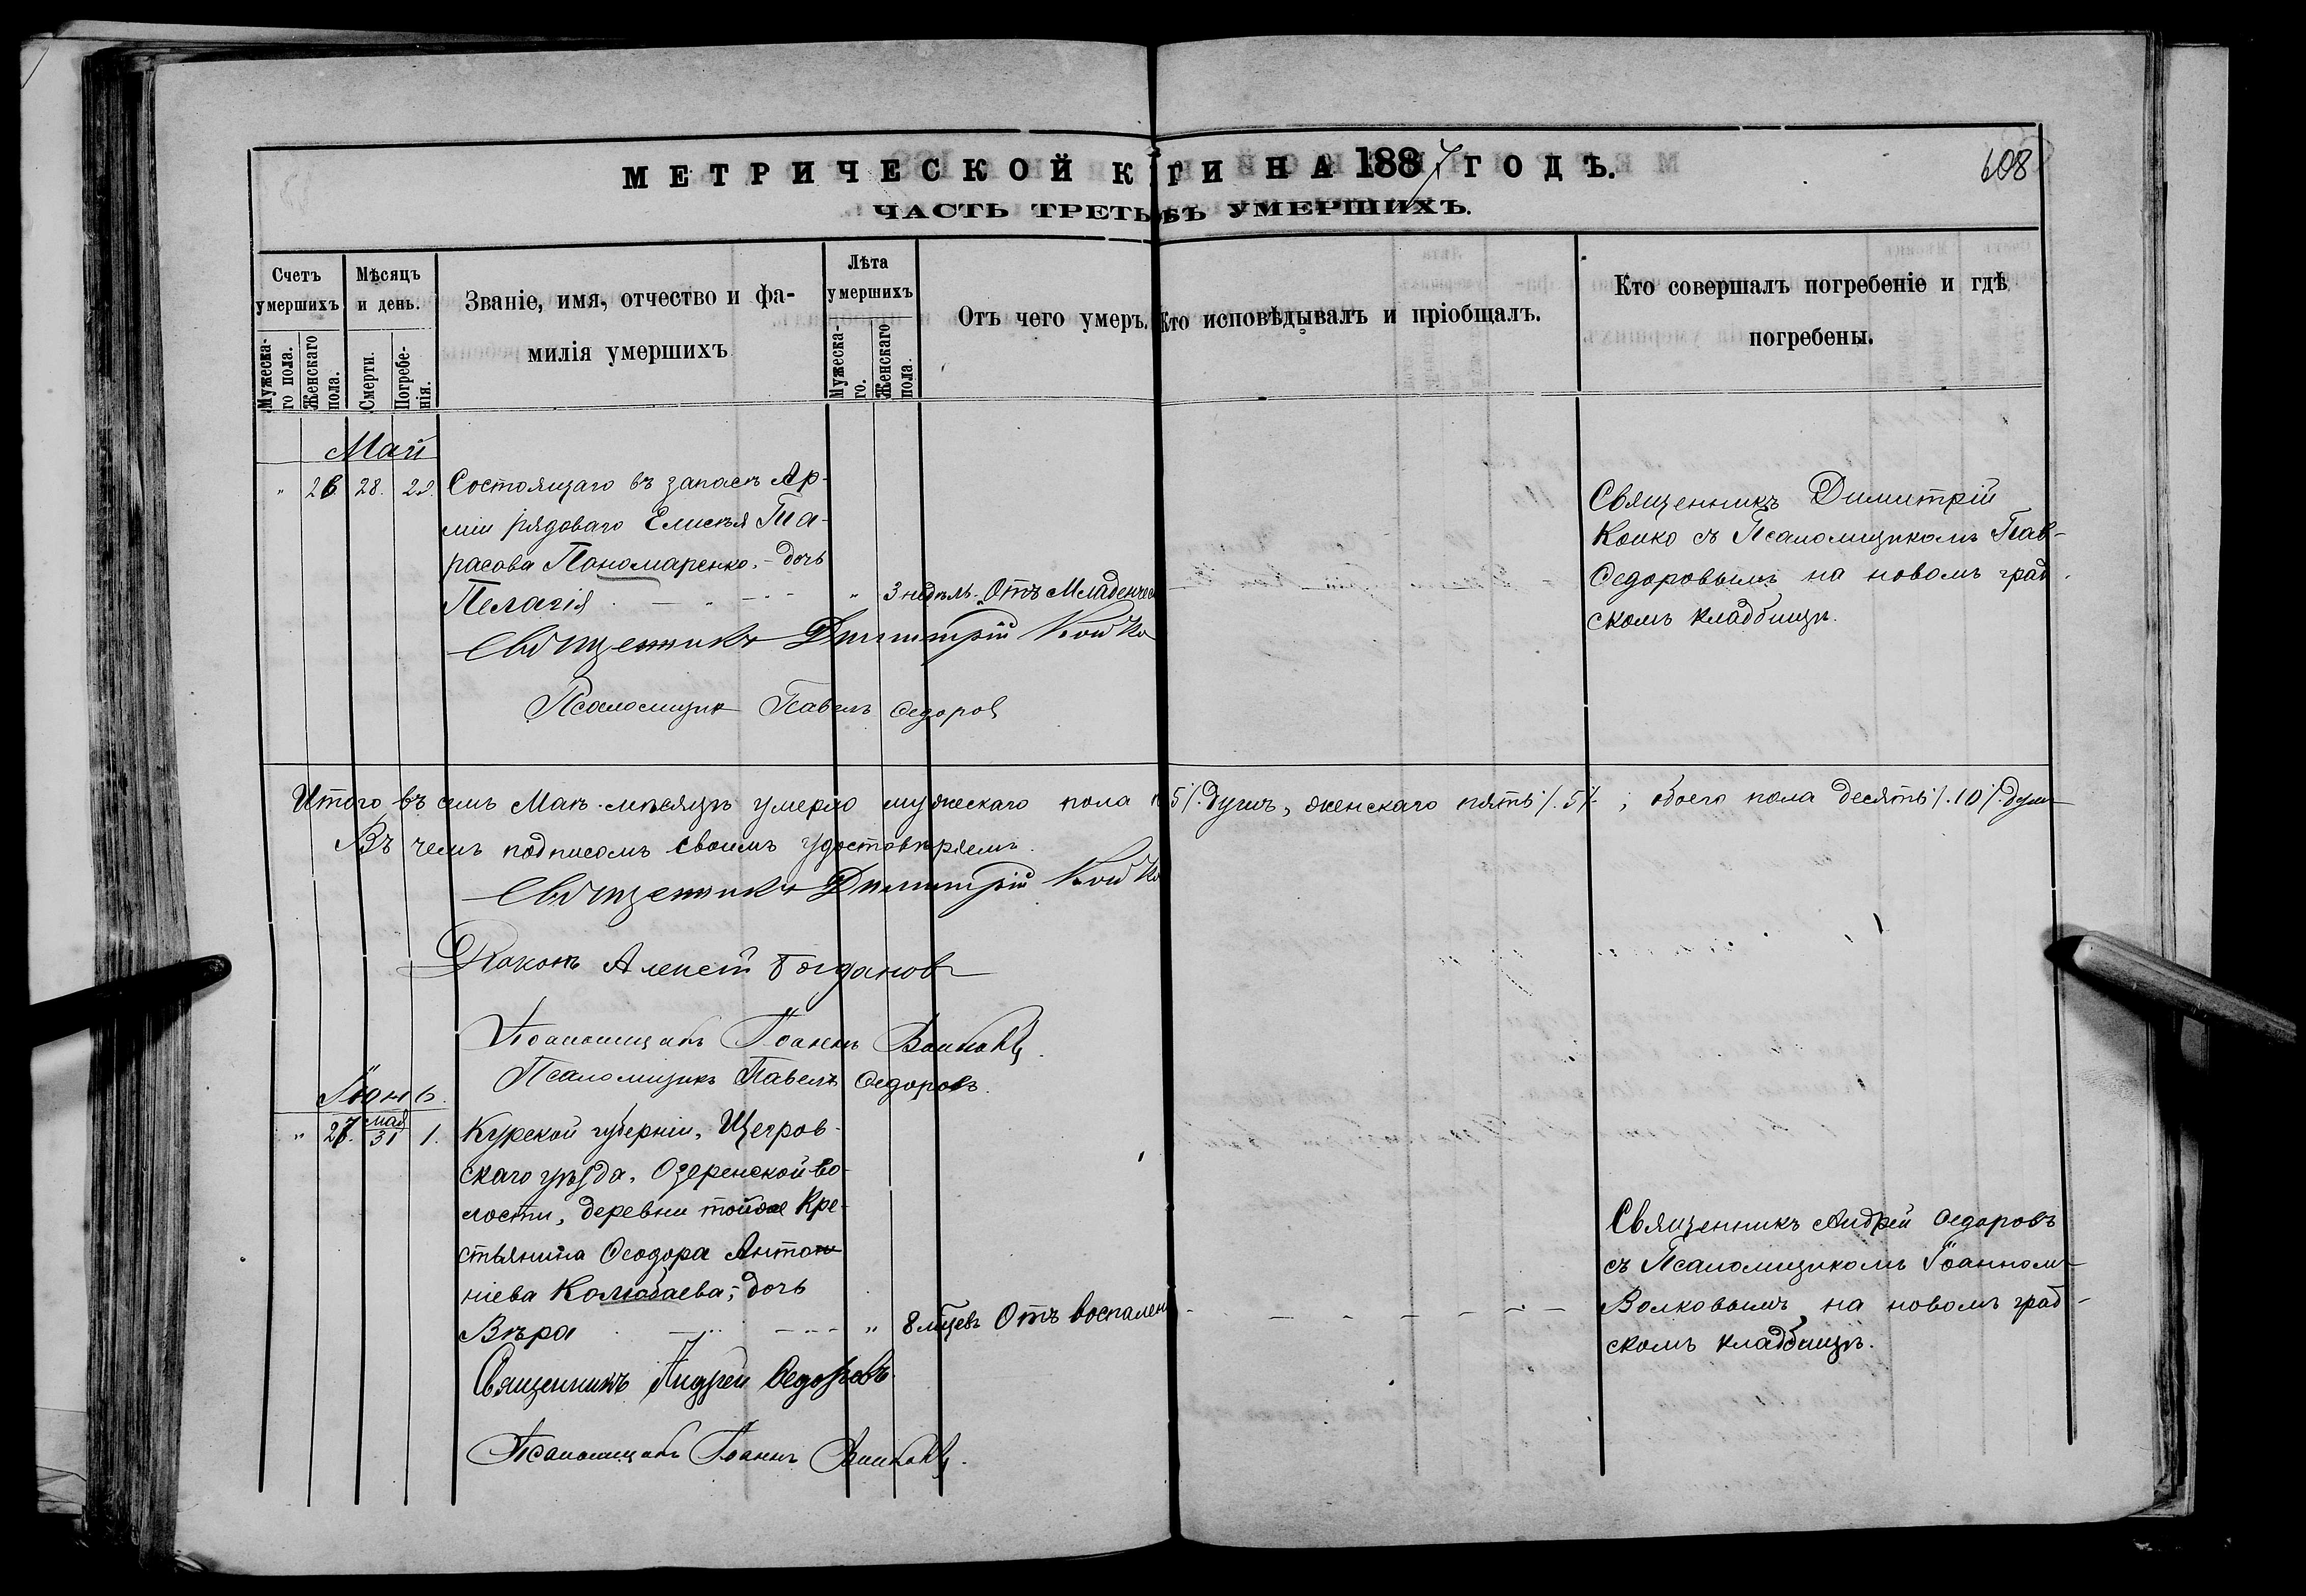 МЕТРИЧЕСКОЙ КНИГИ НА 1887 ГОДЪ.
608
ЧАСТЬ ТРЕТЬЯ УМЕРШИХЪ.
Счетъ умершихъ
Мужеска-го пола.
Женскаго пола.
Мѣсяцъ и день.
Смерти.
Погребе-нія.
Званіе, имя, отчество и фа-
милія умершихъ
Лѣта умершихъ
Мужеска-го.
Женскаго пола
Отъ чего умеръ.
Кто исповѣдывалъ и пріобщалъ.
Кто совершалъ погребеніе и гдѣ
погребены.
Май
" 26 28. 29. Состоящаго въ запасѣ Ар-
міи рядоваго Елисѣя Та-
расова Пономаренко, - дочь
Пелагія " 3 недѣль. Отъ Младенчес
Священникъ Димитрій
Койко съ Псаломщикомъ Пав-
Ѳедоровымъ на новомъ град-
скомъ кладбищѣ.
Священникъ Димитрій Койко
Псаломщик Павелъ Ѳедоров
Итого въ семъ Маѣ мѣсяцѣ умерло мужескаго пола 5%. душъ, женскаго пять %. 5%. ; обоего пола десять %. 10 %. душ
Въ чемъ подписомъ своимъ удостовѣряемъ.
Священникъ Димитрій Койко
Діаконъ Алексѣй Богдановъ
Псаломщикъ Іоаннъ Волковъ.
Псаломщикъ Павелъ Ѳедоровъ.
Іюнь.
" 27. май 31 1. Курской губерніи, Щегров-
скаго уѣзда, Озеренской во-
лости, деревни тойже Кре-
стьянина Ѳеодора Антон-
ніева Колюбаева, - дочь
Вѣра " 8 мѣцевъ Отъ воспален
Священникъ Андрей Ѳедоровъ
съ Псаломщикомъ Іоанномъ
Волковымъ на новомъ град-
скомъ кладбищѣ.
Священникъ Андрей Ѳедоровъ.
Псаломщикъ Іоаннъ Волковъ.